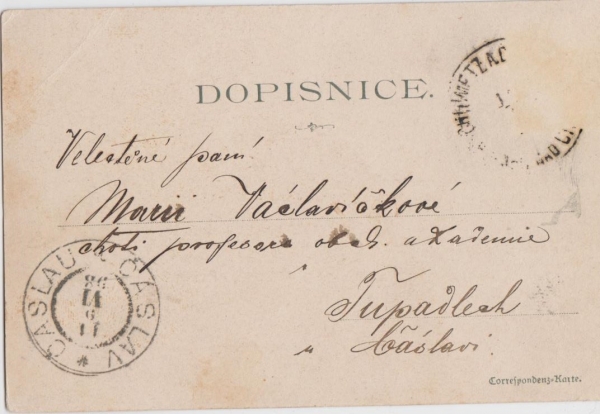 DOPISNICE.
Velectěné paní
Marii Václavíčkové
choti professora obch. akademie
v
Tupadlech
u Čáslavi.
ČASLAU * ČÁSLAV
11
6
VI
98
Correspondenz-Karte.